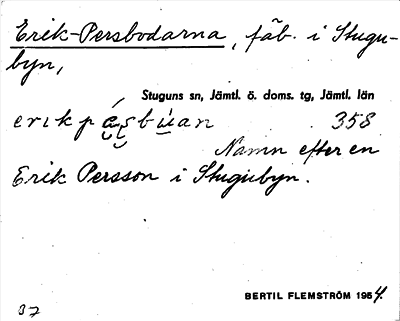 Erik-Persbodarna, fäb. i Stugu-
byn,
Stuguns sn, Jämtl. ö. doms. tg, Jämtl. län
erikpá̮s̮bu̇an 358
Namn efter en
Erik Persson i Stugubyn.
BERTIL FLEMSTRÖM 1954.
37